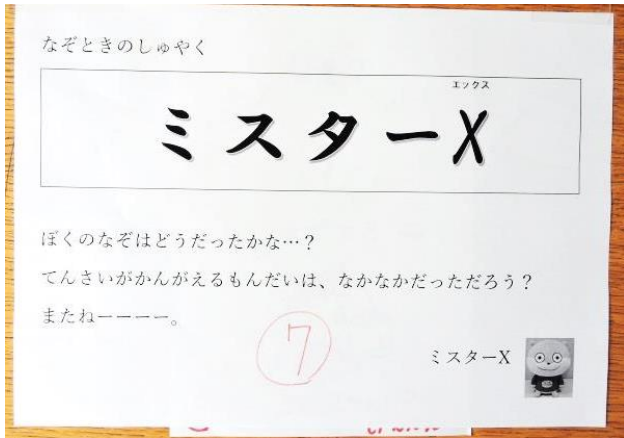 なぞときのしゅやく
エックス
ミスターX
ぼくのなぞはどうだったかな…？
てんさいがかんがえるもんだいは、なかなかだっただろう？
またねーーーー。
7
ミスターX